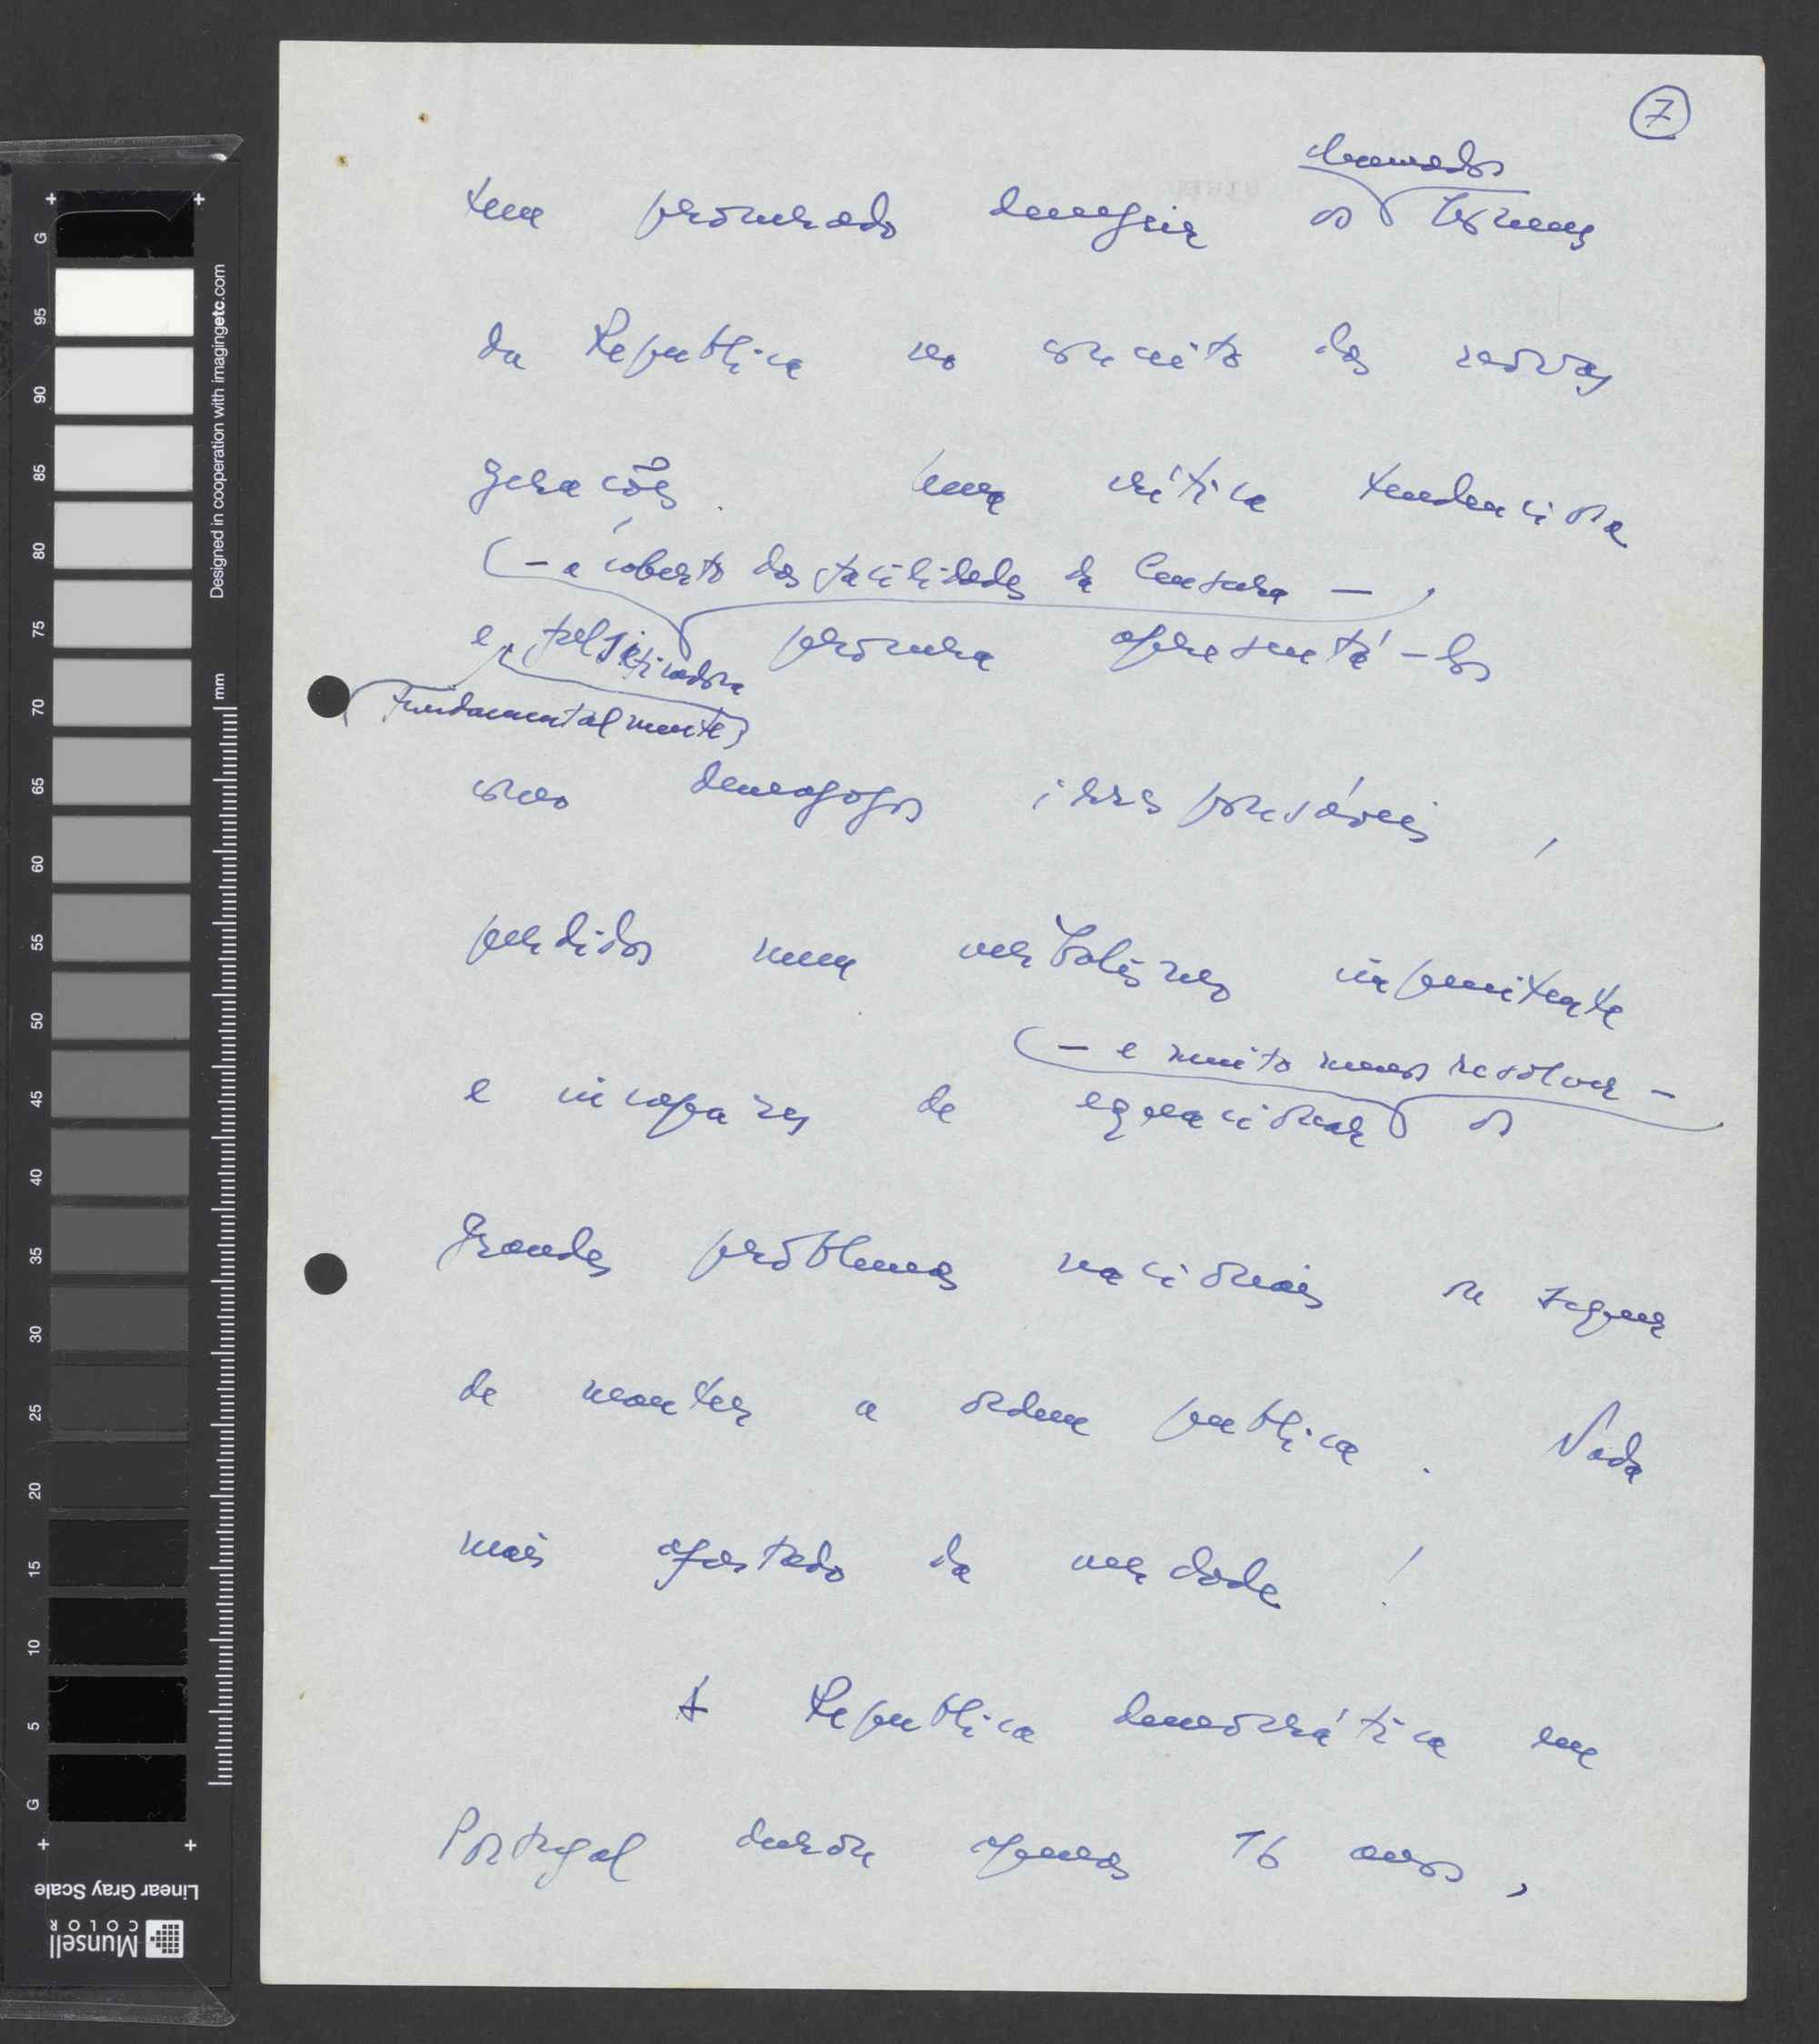 7
chamados
tem procurado denegrir os homens
da Republica no conceito das novas
gerações. Uma crítica tendenciosa
(— a coberto das facilidades da Censura —)
e falsificadora procura apresentá-los
fundamentalmente
como demagogos irresponsáveis,
perdidos num verbalismo impenitente
(— e muito menos resolver —
e incapazes de equacionar os
grandes problemas nacionais ou sequer
de manter a ordem publica. Nada
mais afastado da verdade!
A Republica democrática em
Portugal durou apenas 16 anos,
G
95
90
85
80
75
70
65
60
55
50
45
40
35
30
25
20
15
10
5
G
mm
Designed in cooperation with imagingetc.com
Linear Gray Scale
Munsell
COLOR